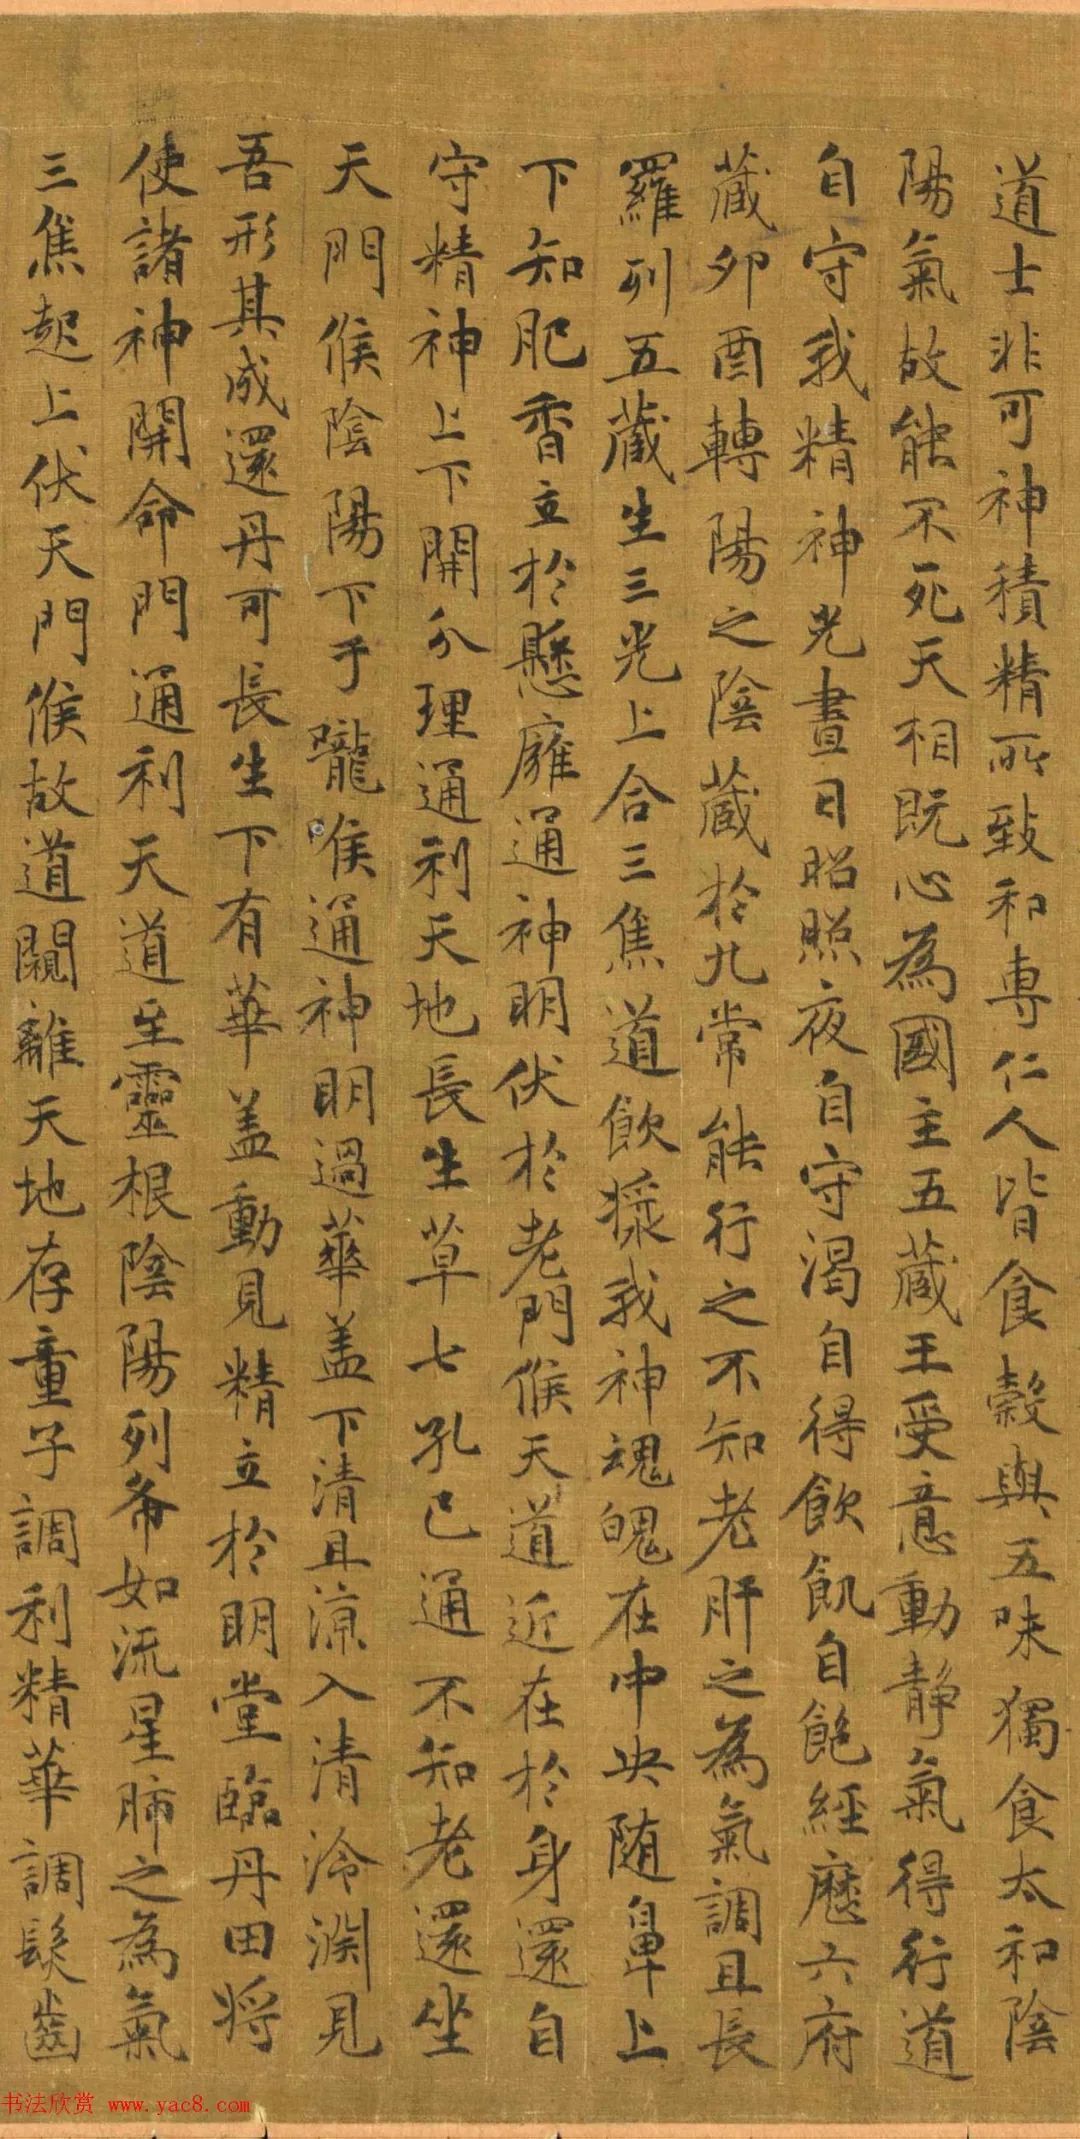 道士非可神積精所致和專仁人皆食穀與五味獨食太和陰
陽氣故能不死天相既心為國主五藏王受意動靜氣得行道
自守我精神光晝日昭照夜自守渴自得飲飢自飽經歷六府
藏卯酉轉陽之陰藏於九常能行之不知老肝之為氣調且長
羅列五藏生三光上合三焦道飲漿我神魂魄在中央随鼻上
下知肥香立於懸廱通神明伏於老門候天道近在於身還自
守精神上下開分理通利天地長生草七孔已通不知老還坐
天門候陰陽下于嚨喉通神明過華盖下清且涼入清泠淵見
吾形其成還丹可長生下有華盖動見精立於明堂臨丹田将
使諸神開命門通利天道至靈根陰陽列布如流星肺之為氣
三焦起上伏天門候故道闚離天地存童子調利精華調髮齒
书法欣赏 www.yac8.com